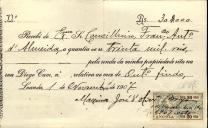 Nº Rs. 30$000
Recebi do Exmo Sr. Conselheiro, Fran.co Ant.º
d'Almeida, a quantia de trinta mil reis,
pela renda da minha propriedade sita na
rua Diogo Cam, relativa ao mez de findo.
Loanda 1 de Novembro de 1907